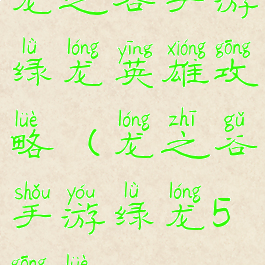 龙之谷手游
lǜ lóng yīng xióng gōng
绿龙英雄攻
lüè lóng zhī gǔ
略（龙之谷
shǒu yóu lǜ lóng
手游绿龙5
gōng lüè